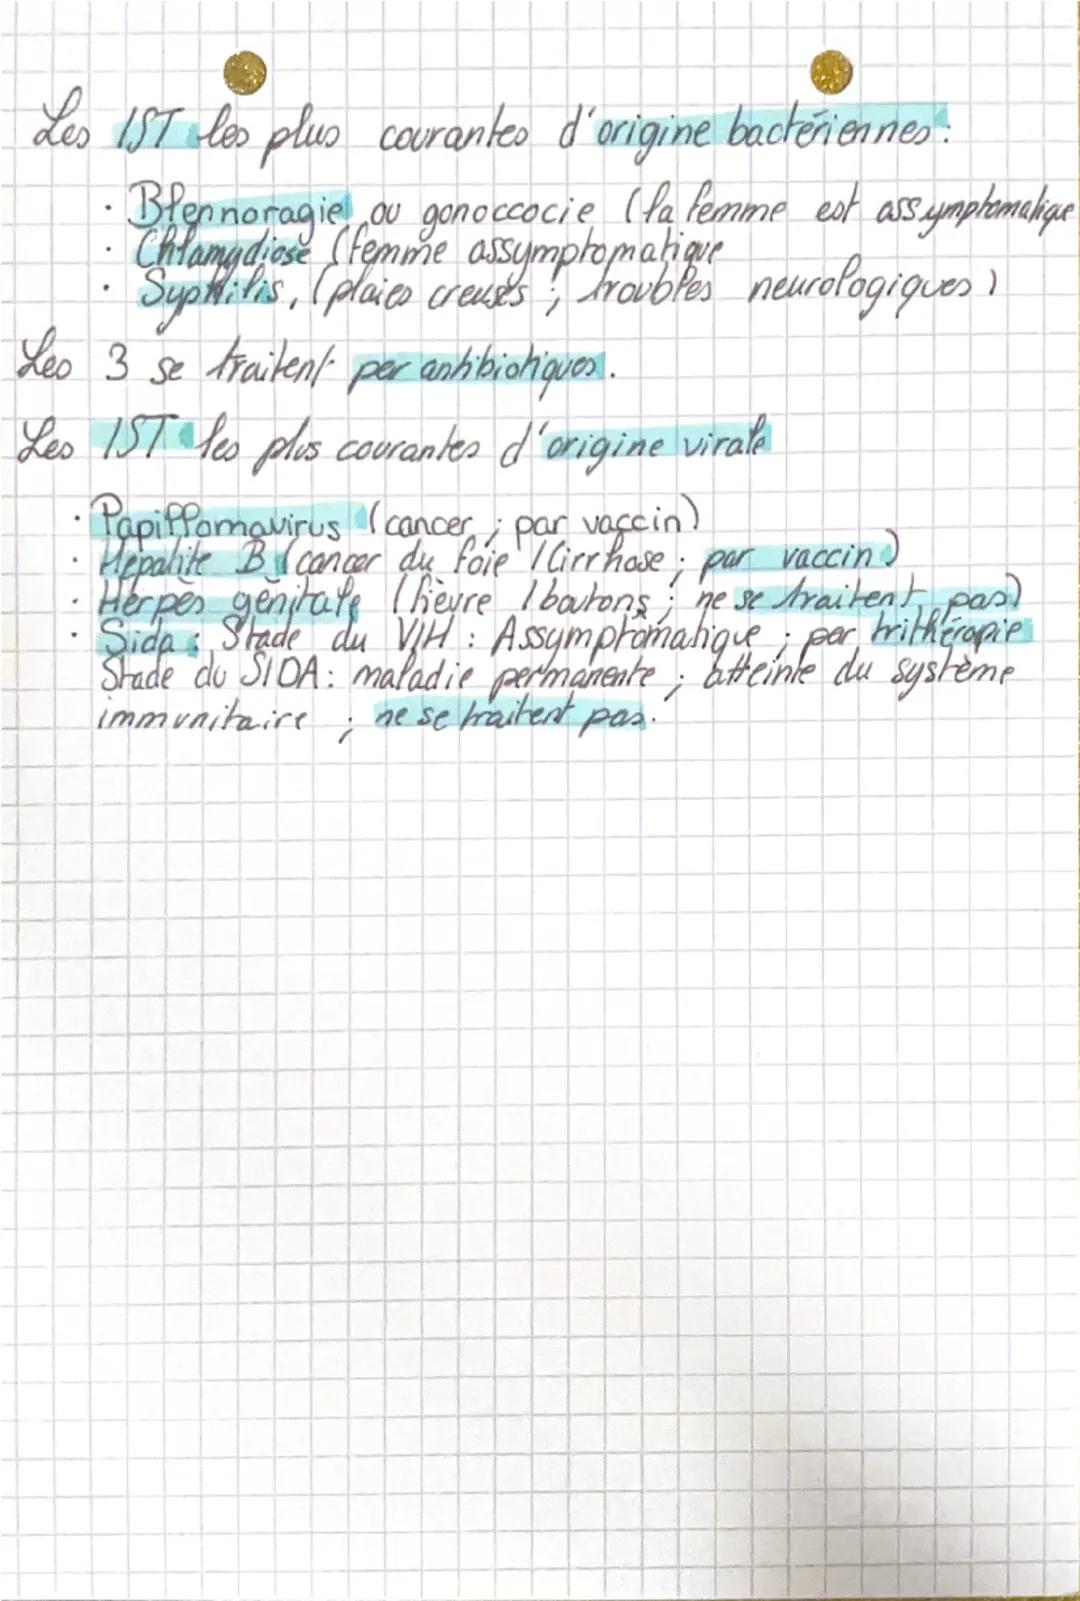 Les IST les plus courantes d'origine bactériennes :
· Blennoragie ou gonoccocie (la femme est assymptomatique
· Chlamydiose (femme assymptomatique
· Syphilis, (plaies creuses ; troubles neurologiques)
Les 3 se traitent par antibiotiques.
Les IST les plus courantes d'origine virale
· Papillomavirus (cancer ; par vaccin)
· Hépatite B (cancer du foie / Cirrhose ; par vaccin)
· Herpès génitale (fièvre / boutons ; ne se traitent pas)
· Sida : Stade du VIH : Assymptômatique ; par trithérapie
Stade du SIDA : maladie permanente ; atteinte du système
immunitaire ; ne se traitent pas.